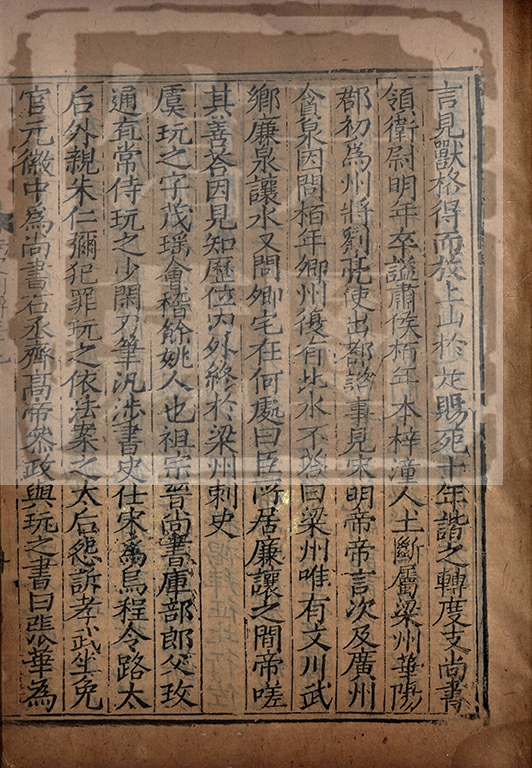 言見獸格得而放上山於是賜死十年諧之轉度支尚書
領衛尉明年卒謚肅侯栢年本梓潼人土斷屬梁州華陽
郡初為州將劉亮使出都諮事見宋明帝帝言次及廣州
貪泉因問栢年卿州復有此水不荅曰梁州唯有文川武
鄉廉泉讓水又問卿宅在何處曰臣所居廉讓之間帝嗟
其善荅因見知歷位內外終於梁州刺史
虞玩之字茂瑤會稽餘姚人也祖宗晉尚書庫部郎父玫
通直常侍玩之少閑刀筆汎涉書史仕宋為烏程令路太
后外親朱仁彌犯罪玩之依法案之太后怨訴孝武坐免
官元徽中為尚書右丞齊高帝參政與玩之書曰張華為